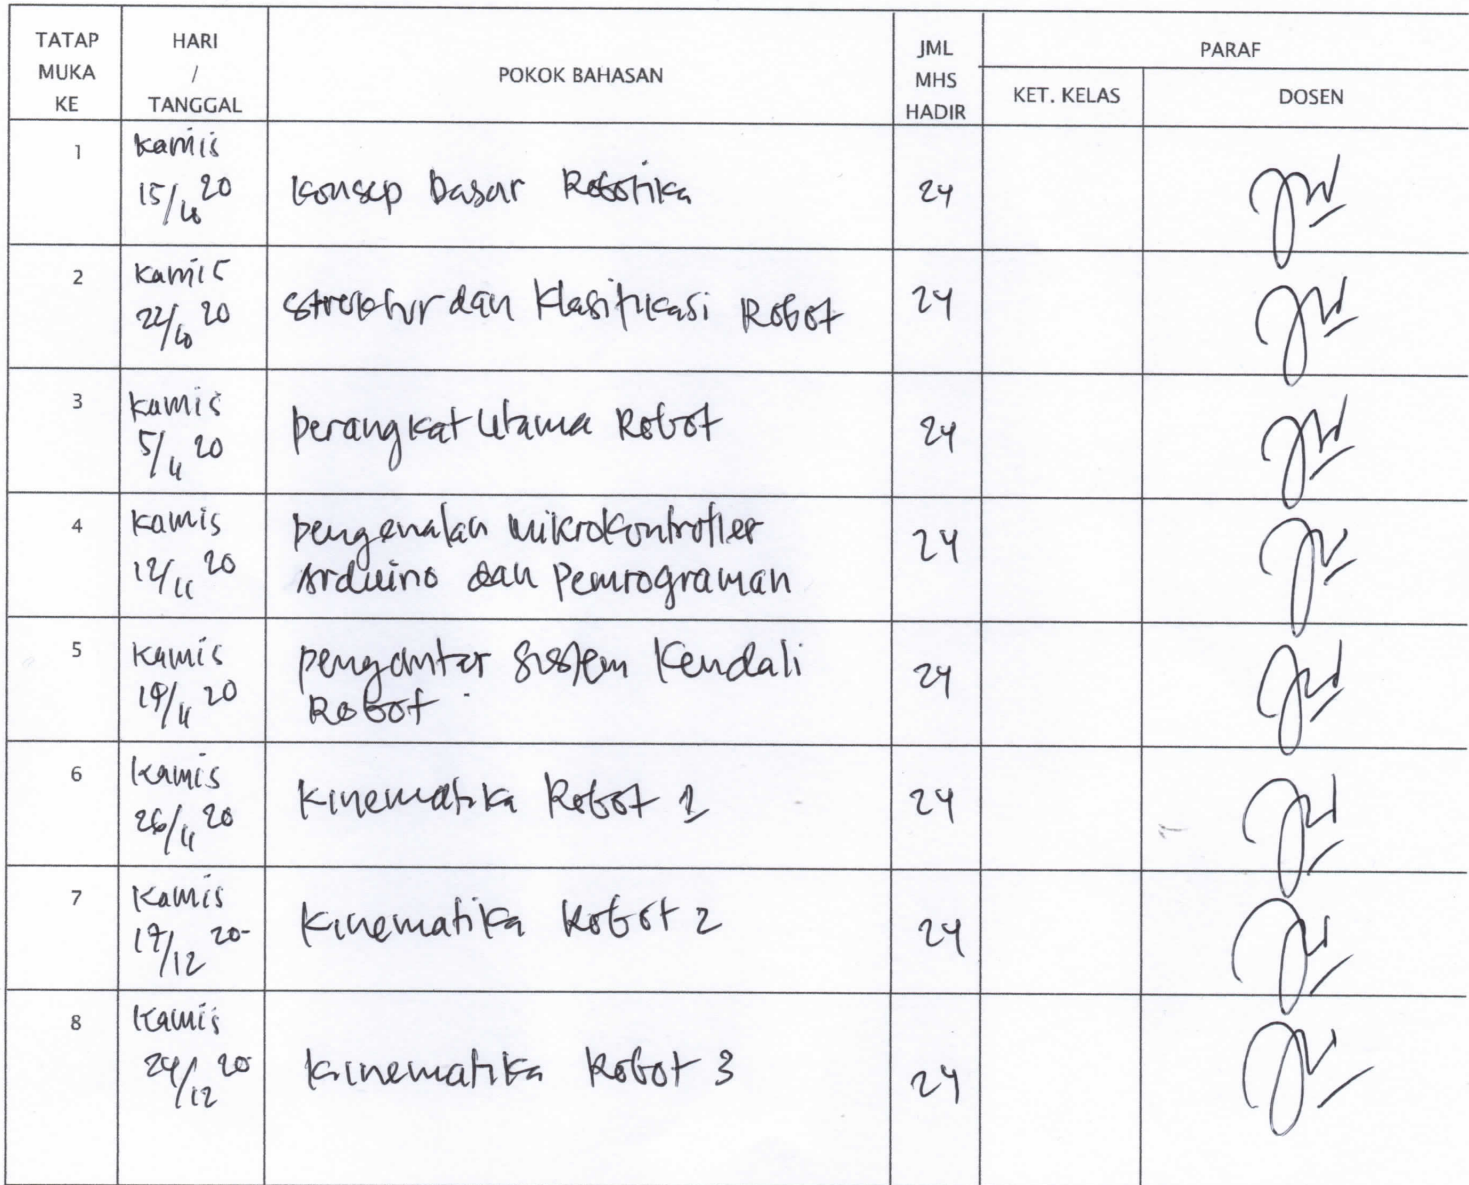 TATAP MUKA KE HARI / TANGGAL POKOK BAHASAN JML MHS HADIR PARAF
KET. KELAS DOSEN
1 Kamis 15/10 20 Konsep Dasar Robotika 24
2 Kamis 22/10 20 Struktur dan Klasifikasi Robot 24
3 Kamis 5/11 20 Perangkat Utama Robot 24
4 Kamis 12/11 20 Pengenalan Mikrokontroller
Arduino dan Pemrograman 24
5 Kamis 19/11 20 Pengantar Sistem Kendali
Robot 24
6 Kamis 26/11 20 Kinematika Robot 1 24
7 Kamis 17/12 20 Kinematika Robot 2 24
8 Kamis 24/12 20 Kinematika Robot 3 24